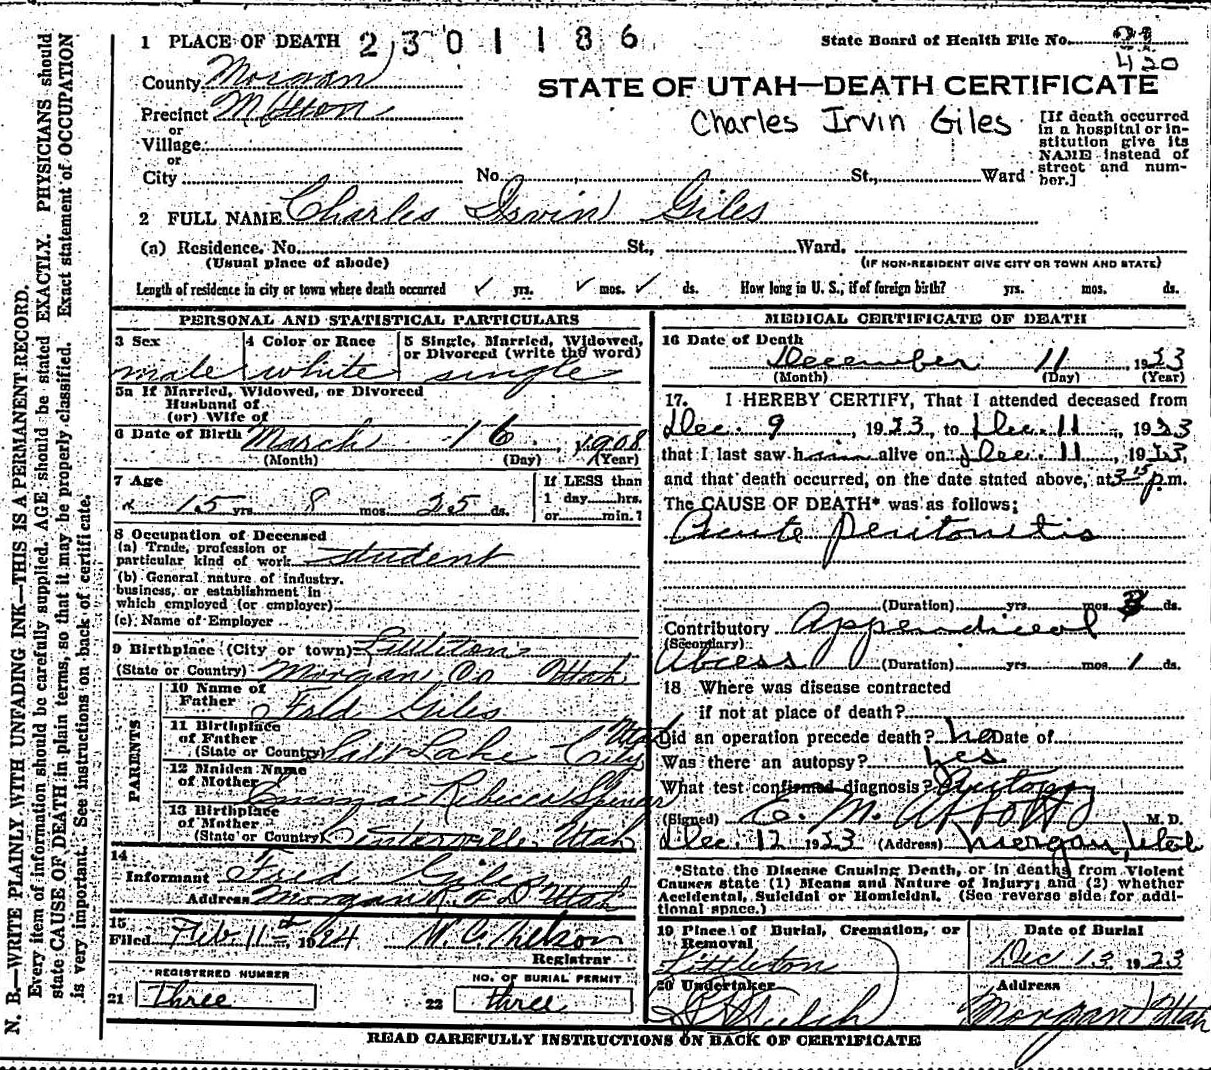 1 PLACE OF DEATH 2301186 State Board of Health File No.
420
County Morgan
STATE OF UTAH—DEATH CERTIFICATE
Precinct Milton
Charles Irvin Giles
[If death occurred in a hospital or institution give its NAME instead of street and number.]
or
Village
or
City No. St., Ward
2 FULL NAME Charles Irvin Giles
(a) Residence, No. St., Ward.
(Usual place of abode) (IF NON-RESIDENT GIVE CITY OR TOWN AND STATE)
Length of residence in city or town where death occurred ✓ yrs. ✓ mos. ✓ ds. How long in U. S., if of foreign birth? yrs. mos. ds.
PERSONAL AND STATISTICAL PARTICULARS
3 Sex 4 Color or Race 5 Single, Married, Widowed, or Divorced (write the word)
male white single
5a If Married, Widowed, or Divorced
Husband of
(or) Wife of
6 Date of Birth March 16, 1908
(Month) (Day) (Year)
7 Age If LESS than
15 yrs 8 mos. 25 ds. 1 day hrs.
or min.?
8 Occupation of Deceased
(a) Trade, profession or
particular kind of work student
(b) General nature of industry,
business, or establishment in
which employed (or employer)
(c) Name of Employer
9 Birthplace (City or town)
(State or Country) Morgan Co Utah
PARENTS
10 Name of
Father Fred Giles
11 Birthplace
of Father Utah
(State or Country) Salt Lake City
12 Maiden Name
of Mother Emma Rebecca Spencer
13 Birthplace
of Mother
(State or Country) Centerville, Utah
14
Informant Fred Giles
Address Morgan R.F.D. Utah
15
Filed Feb. 11 1924 W. C. Nelson
Registrar
REGISTERED NUMBER NO. OF BURIAL PERMIT
21 Three 22 three
MEDICAL CERTIFICATE OF DEATH
16 Date of Death
December 11 1923
(Month) (Day) (Year)
17. I HEREBY CERTIFY, That I attended deceased from
Dec. 9, 1923, to Dec. 11, 1923
that I last saw him alive on Dec. 11, 1923,
and that death occurred, on the date stated above, at 3 15 p.m.
The CAUSE OF DEATH* was as follows:
Acute peritonitis
(Duration) yrs. mos. 3 ds.
Contributory Appendiceal
(Secondary)
Abcess (Duration) yrs. mos. 1 ds.
18 Where was disease contracted
if not at place of death?
Did an operation precede death? no Date of
Was there an autopsy? yes
What test confirmed diagnosis? Autopsy
(Signed) E. M. Abbott M. D.
Dec. 12 1923 (Address) Morgan, Utah
*State the Disease Causing Death, or in deaths from Violent
Causes state (1) Means and Nature of Injury; and (2) whether
Accidental, Suicidal or Homicidal. (See reverse side for addi-
tional space.)
19 Place of Burial, Cremation, or Removal Date of Burial
Littleton Dec 13 1923
20 Undertaker Address
Morgan Utah
READ CAREFULLY INSTRUCTIONS ON BACK OF CERTIFICATE
N. B.—WRITE PLAINLY WITH UNFADING INK—THIS IS A PERMANENT RECORD.
Every item of information should be carefully supplied. AGE should be stated EXACTLY. PHYSICIANS should
state CAUSE OF DEATH in plain terms, so that it may be properly classified. Exact statement of OCCUPATION
is very important. See instructions on back of certificate.